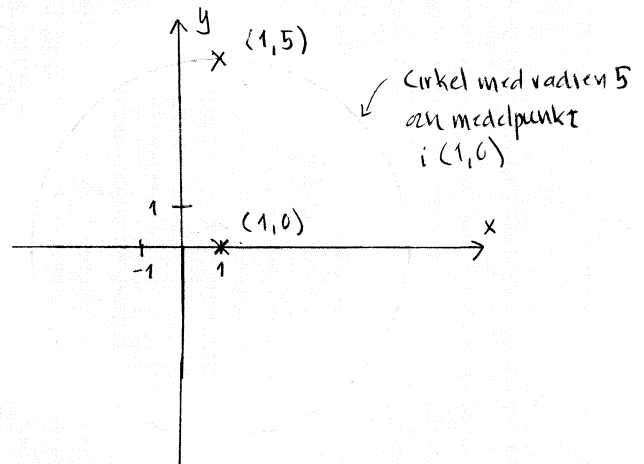 y
(1,5)
Cirkel med radien 5
och medelpunkt
i (1,0)
1
(1,0)
x
-1
1